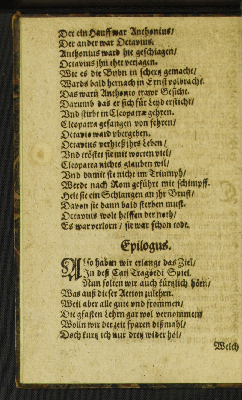 Der ein Hauff war Anthonius/
Der ander war Octavius.
Anthonius ward ihe geschlagen/
Octavius ihn thet veriagen.
Wie es die Bubn in schertz gemacht/
Wards bald hernach in Ernst volbracht.
Das warn Anthonio trawre Gesicht.
Darumb das er sich für Leyd ersticht/
Und stirbt in Cleopatræ gehren.
Cleopatra gefangen von
Octavio ward vbergeben.
Octavius verhieß ihrs Leben/
Und tröstet sie mit worten viel/
Cleopatra nichts glauben wil/
Und damit sie nicht im Triumph/
Werde nach Rom geführt mit schimpff.
Helt sie ein Schlangen an ihr Brust/
Davon sie dann bald sterben must.
Octavius wolt helffen der noth/
Es war verlorn/ sie war schon todt.
Epilogus.
Also haben wir erlangt das Ziel/
In deß Caij Tragoedi Spiel.
Nun solten wir auch kürtzlich hörn/
Was auß dieser Action zulehrn.
Weil aber alle gute vnd frommen/
Die gfasten Lehrn gar wol vernommen/
Wolln wir der zeit sparen dißmahl/
Doch kurtz ich nur drey wider hol/
Welch